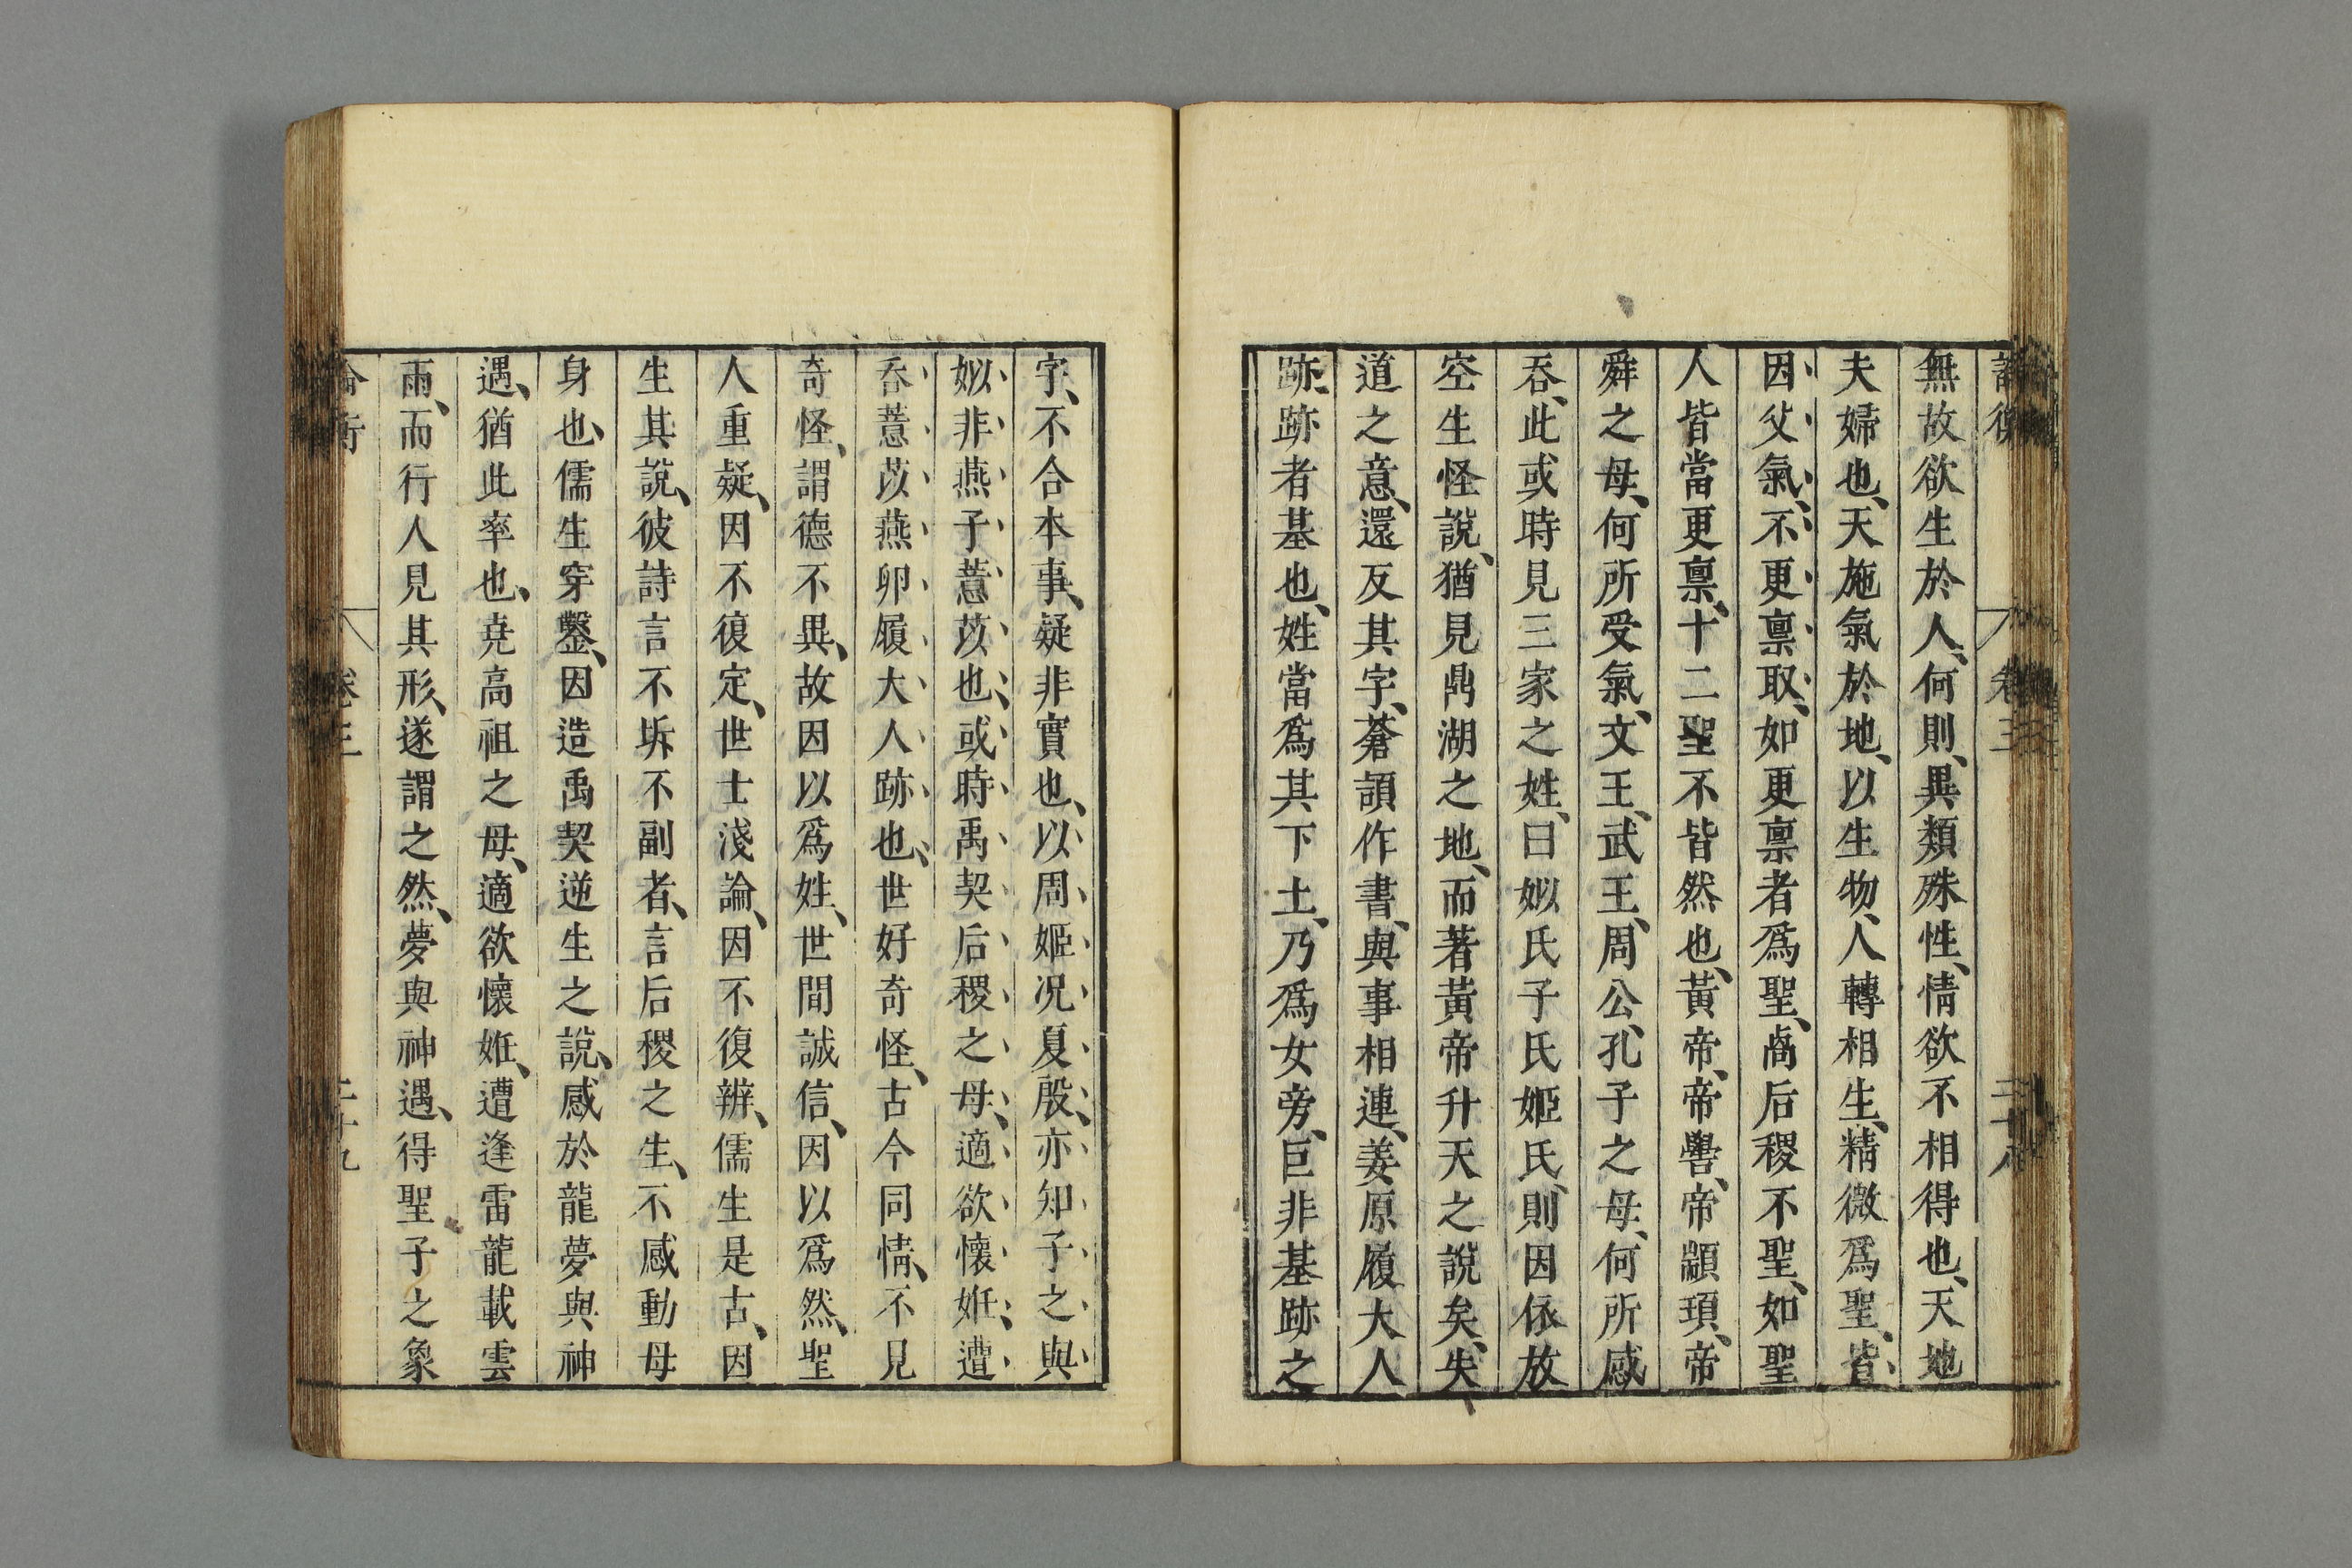 論衡 卷三 二十八
無故欲生於人、何則、異類殊性、情欲不相得也、天地
夫婦也、天施氣於地、以生物、人轉相生、精微爲聖、皆
因父氣、不更禀取、如更禀者爲聖、卨后稷不聖、如聖
人皆當更禀、十二聖不皆然也、黃帝、帝嚳、帝顓頊、帝
舜之母、何所受氣、文王、武王、周公、孔子之母、何所感
吞、此或時見三家之姓、曰姒氏子氏姬氏、則因依放
空生怪說、猶見鼎湖之地、而著黃帝升天之說矣、失
道之意、還反其字、蒼頡作書、與事相連、姜原履大人
跡、跡者基也、姓當爲其下土、乃爲女旁、巨非基跡之
字、不合本事、疑非實也、以周姬况夏殷、亦知子之與
姒非燕子薏苡也、或時禹契后稷之母、適欲懷姙、遭
吞薏苡燕卵履大人跡也、世好奇怪、古今同情、不見
奇怪、謂德不異、故因以爲姓、世間誠信、因以爲然、聖
人重疑、因不復定、世士淺論、因不復辨、儒生是古、因
生其說、彼詩言不坼不副者、言后稷之生、不感動母
身也、儒生穿鑿、因造禹契逆生之說、感於龍夢與神
遇、猶此率也、堯高祖之母、適欲懷姙、遭逢雷龍載雲
雨、而行人見其形、遂謂之然、夢與神遇、得聖子之象
論衡 卷三 二十九